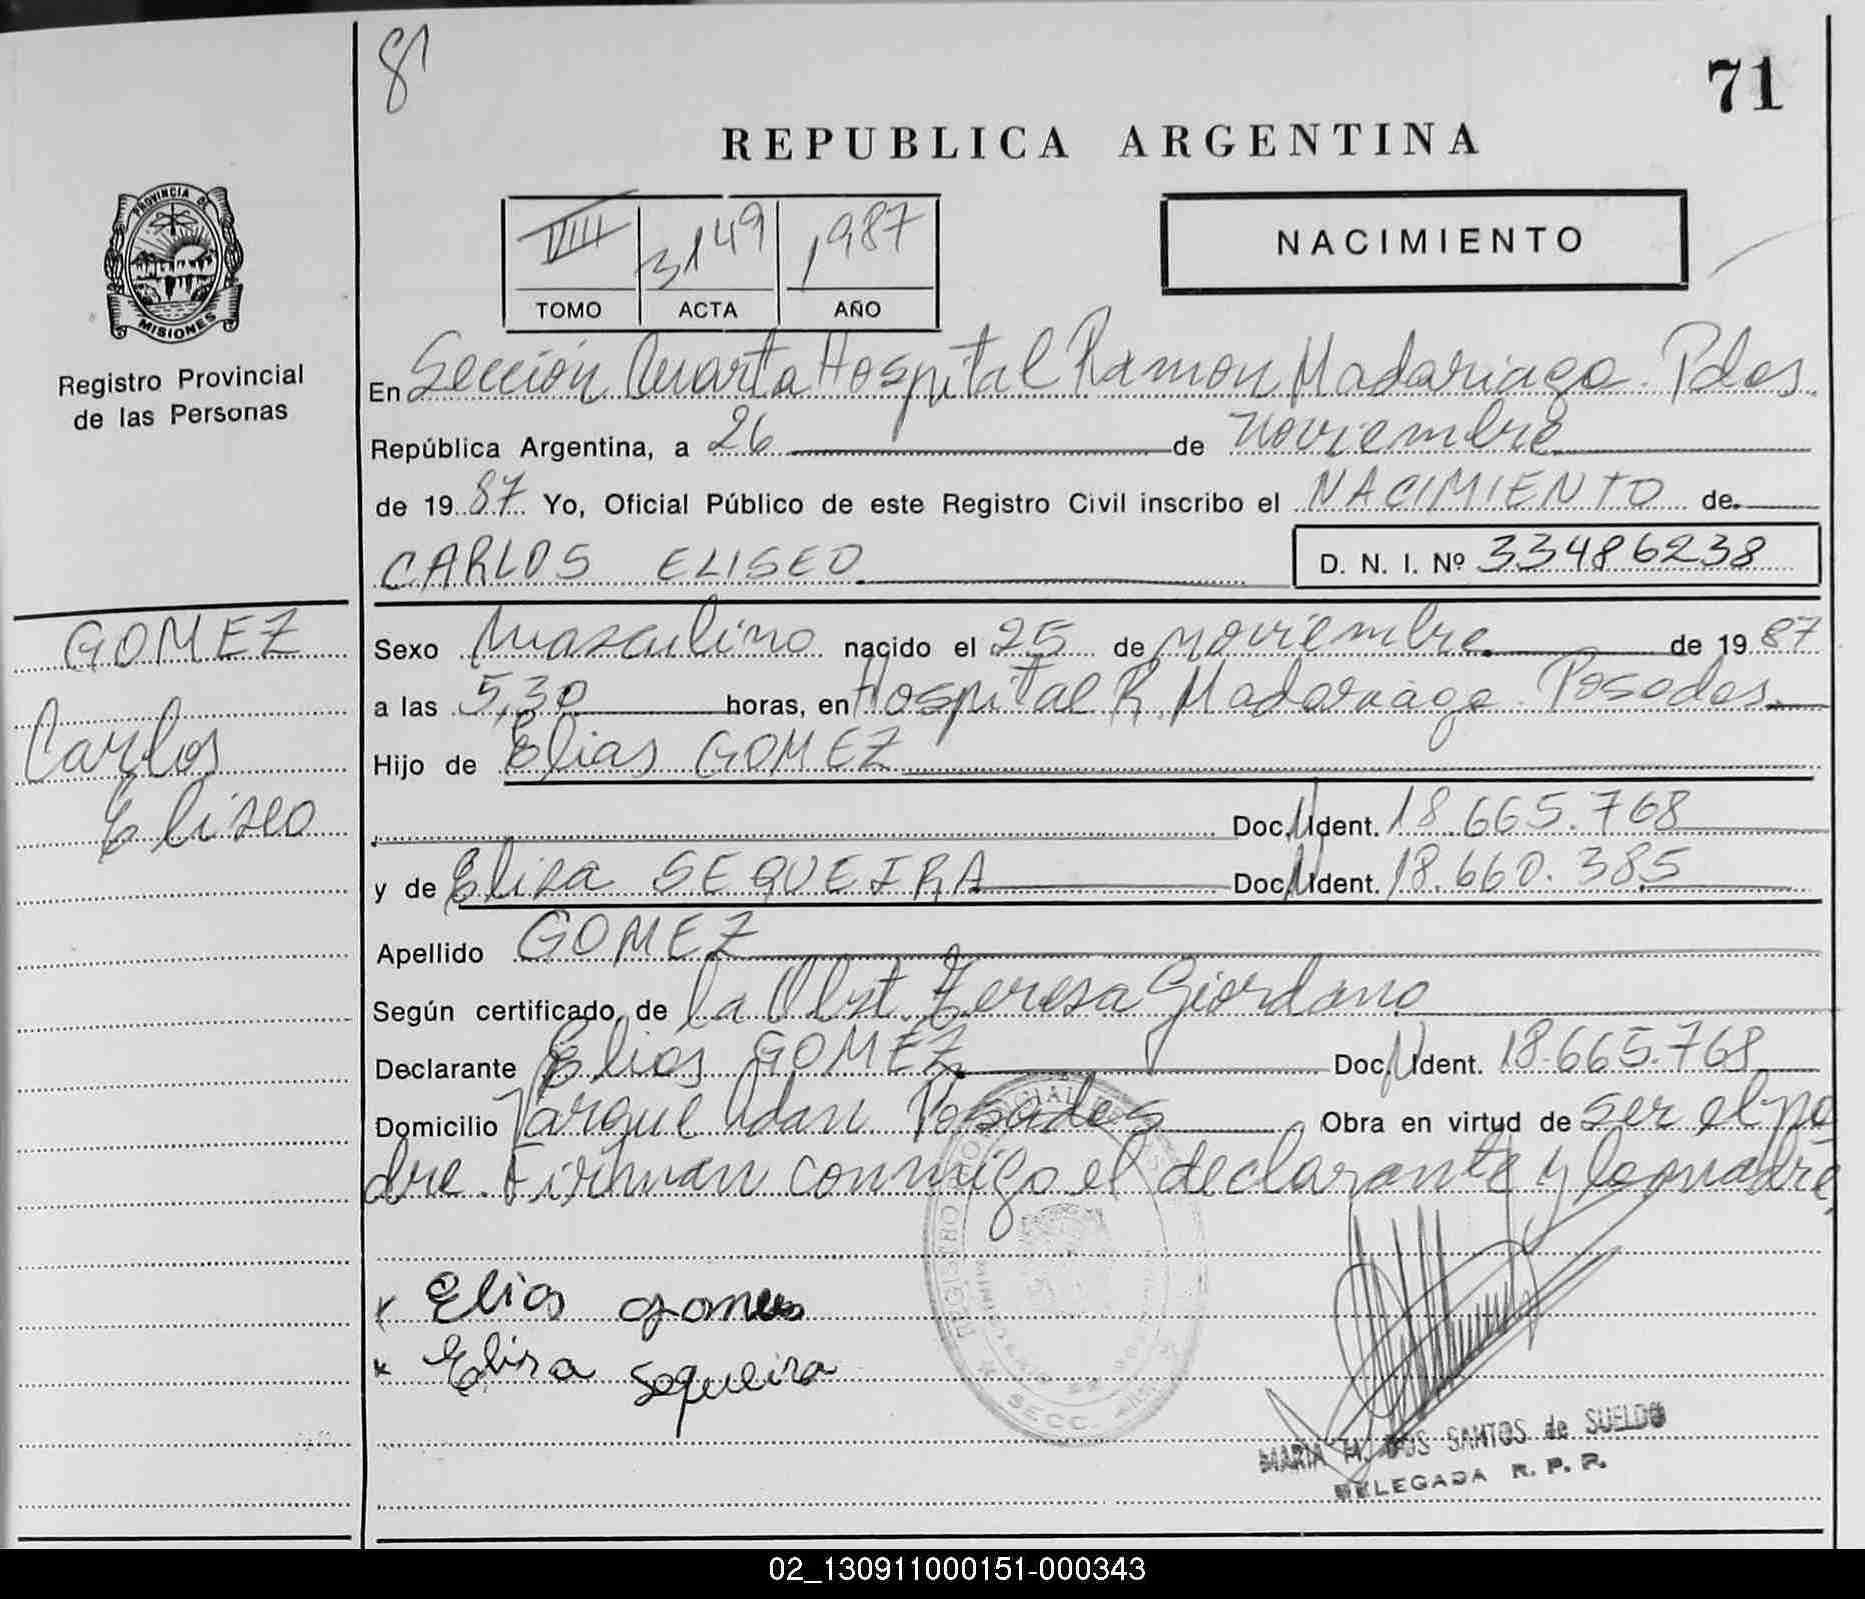 8
71
REPUBLICA ARGENTINA
PROVINCIA DE
MISIONES
Registro Provincial
de las Personas
VIII 3149 1987
TOMO ACTA AÑO
NACIMIENTO
En Sección Cuarta Hospital Ramon Madariaga. Pdas
República Argentina, a 26 de noviembre
de 19 87 Yo, Oficial Público de este Registro Civil inscribo el NACIMIENTO de
CARLOS ELISEO
D. N. I. Nº 33486238
GOMEZ
Carlos
Eliseo
Sexo Masculino nacido el 25 de noviembre de 19 87
a las 5,30 horas, en Hospital R. Madariaga. Posadas.
Hijo de Elias GOMEZ
Doc. Ident. 18.665.768
y de Elisa SEQUEIRA Doc. Ident. 18.660.385
Apellido GOMEZ
Según certificado de la Obst. Teresa Giordano
Declarante Elias GOMEZ Doc. Ident. 18.665.768
Domicilio Parque Adam Posadas Obra en virtud de ser el pa
dre. Firman conmigo el declarante y la madre
x Elias gomes
x Elisa sequeira
REGISTRO PROVINCIAL DE
SECC.
MARIA M. DOS SANTOS de SUELDO
DELEGADA R. P. P.
02_130911000151-000343